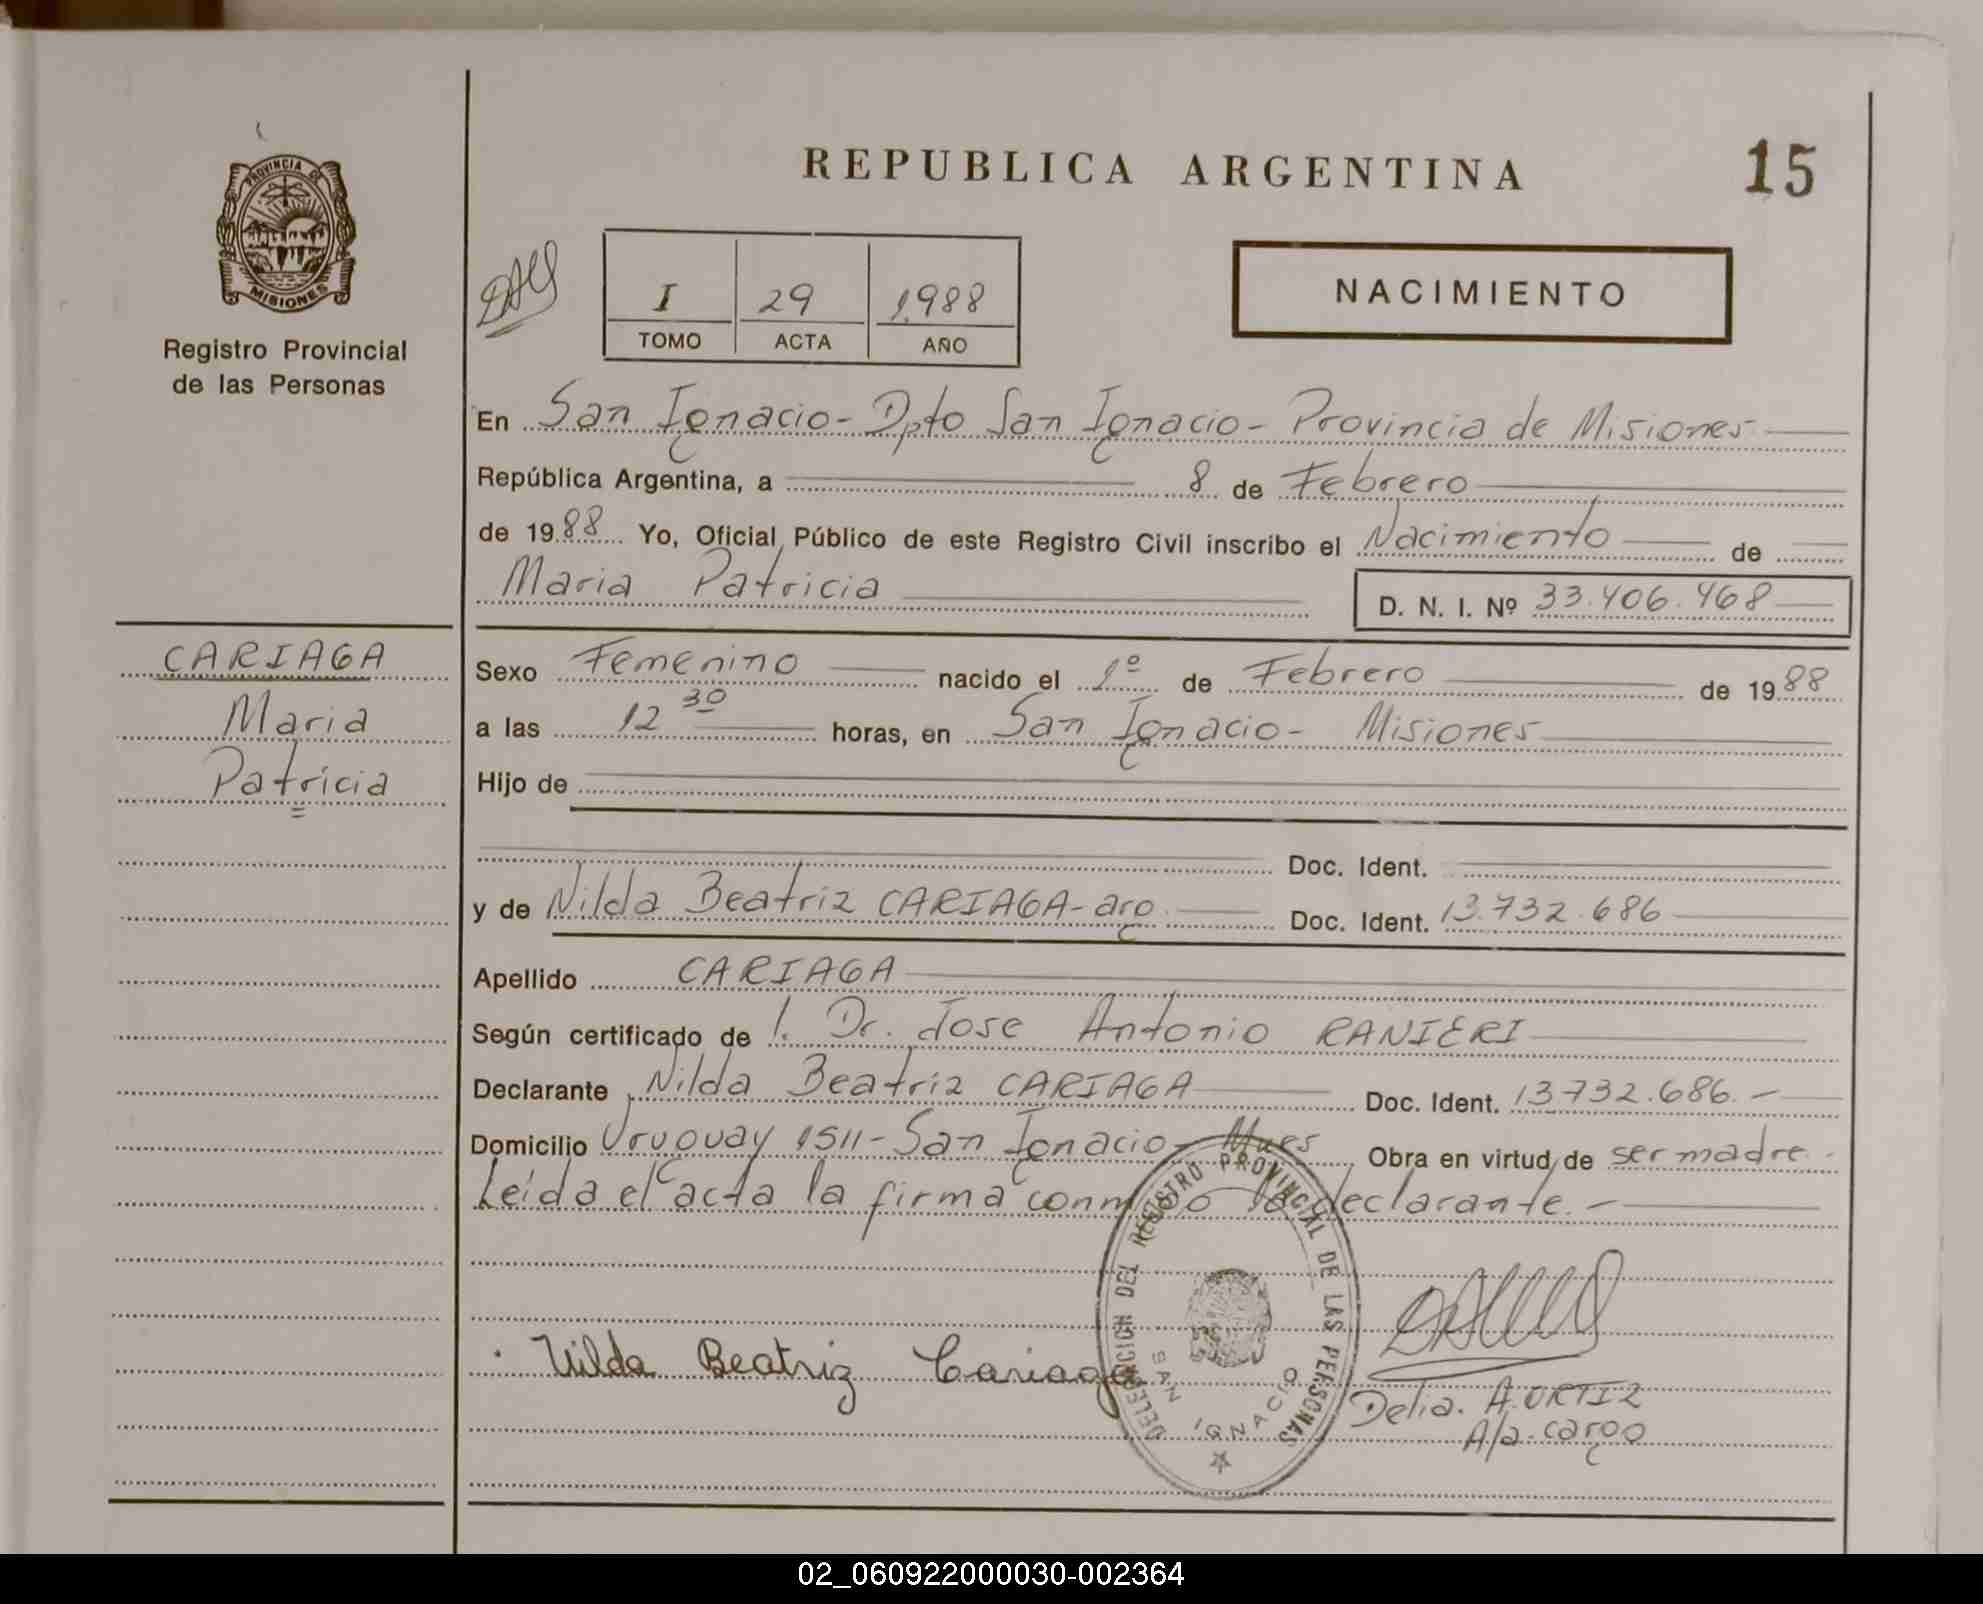 REPUBLICA ARGENTINA
15
PROVINCIA DE
MISIONES
Registro Provincial
de las Personas
I 29 1988
TOMO ACTA AÑO
NACIMIENTO
En San Ignacio - Dpto San Ignacio - Provincia de Misiones
República Argentina, a 8 de Febrero
de 1988 Yo, Oficial Público de este Registro Civil inscribo el Nacimiento de
Maria Patricia D. N. I. Nº 33.406.468
CARIAGA
Maria
Patricia
Sexo Femenino nacido el 1º de Febrero de 1988
a las 12 30 horas, en San Ignacio - Misiones
Hijo de
Doc. Ident.
y de Nilda Beatriz CARIAGA - arg. Doc. Ident. 13.732.686
Apellido CARIAGA
Según certificado de l. Dr. Jose Antonio RANIERI
Declarante Nilda Beatriz CARIAGA Doc. Ident. 13.732.686.-
Domicilio Uruguay 1511 - San Ignacio - Mnes Obra en virtud de ser madre.-
Leída el acta la firma conmigo la declarante.-
DELEGACION DEL REGISTRO PROVINCIAL DE LAS PERSONAS
SAN IGNACIO
Nilda Beatriz Cariaga
Delia. A. ORTIZ
A/a. cargo
02_060922000030-002364